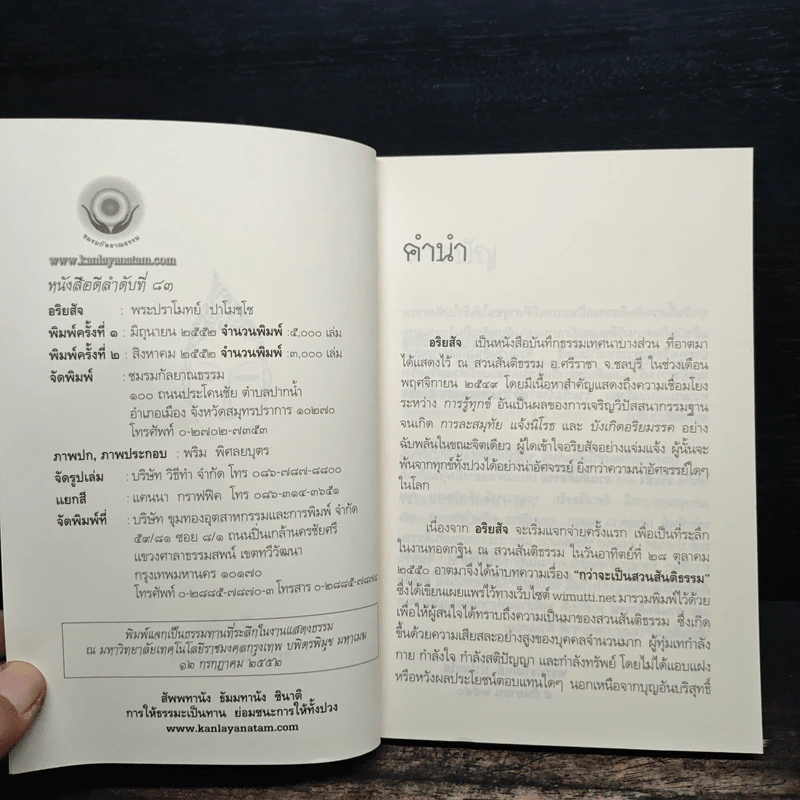 ชมรมกัลยาณธรรม
www.kanlayanatam.com
หนังสือดีลำดับที่ ๘๓
อริยสัจ : พระปราโมทย์ ปาโมชฺโช
พิมพ์ครั้งที่ ๑ : มิถุนายน ๒๕๕๒ จำนวนพิมพ์ :๕,๐๐๐ เล่ม
พิมพ์ครั้งที่ ๒ : สิงหาคม ๒๕๕๒ จำนวนพิมพ์ :๓,๐๐๐ เล่ม
จัดพิมพ์ : ชมรมกัลยาณธรรม
๑๐๐ ถนนประโคนชัย ตำบลปากน้ำ
อำเภอเมือง จังหวัดสมุทรปราการ ๑๐๒๗๐
โทรศัพท์ ๐-๒๗๐๒-๗๓๕๓
ภาพปก, ภาพประกอบ : พริม พิศลยบุตร
จัดรูปเล่ม : บริษัท วิธีทำ จำกัด โทร ๐๘๖-๗๘๗-๘๘๐๐
แยกสี : แคนนา กราฟฟิค โทร ๐๘๖-๓๑๔-๓๖๕๑
จัดพิมพ์ที่ : บริษัท ขุมทองอุตสาหกรรมและการพิมพ์ จำกัด
๕๙/๘๑ ซอย ๘/๑ ถนนปิ่นเกล้านครชัยศรี
แขวงศาลาธรรมสพน์ เขตทวีวัฒนา
กรุงเทพมหานคร ๑๐๑๗๐
โทรศัพท์ ๐-๒๘๘๕-๗๘๗๐-๓ โทรสาร
พิมพ์แจกเป็นธรรมทานที่ระลึกในงานแสดงธรรม
ณ มหาวิทยาลัยเทคโนโลยีราชมงคลกรุงเทพ บพิตรพิมุข มหาเมฆ
๑๒ กรกฎาคม ๒๕๕๒
สัพพทานัง ธัมมทานัง ชินาติ
การให้ธรรมะเป็นทาน ย่อมชนะการให้ทั้งปวง
www.kanlayanatam.com
คำนำ
อริยสัจ เป็นหนังสือบันทึกธรรมเทศนาบางส่วน ที่อาตมา
ได้แสดงไว้ ณ สวนสันติธรรม อ.ศรีราชา จ.ชลบุรี ในช่วงเดือน
พฤศจิกายน ๒๕๔๙ โดยมีเนื้อหาสำคัญแสดงถึงความเชื่อมโยง
ระหว่าง การรู้ทุกข์ อันเป็นผลของการเจริญวิปัสสนากรรมฐาน
จนเกิด การละสมุทัย แจ้งนิโรธ และ บังเกิดอริยมรรค อย่าง
ฉับพลันในขณะจิตเดียว ผู้ใดเข้าใจอริยสัจอย่างแจ่มแจ้ง ผู้นั้นจะ
พ้นจากทุกข์ทั้งปวงได้อย่างน่าอัศจรรย์ ยิ่งกว่าความน่าอัศจรรย์ใดๆ
ในโลก
เนื่องจาก อริยสัจ จะเริ่มแจกจ่ายครั้งแรก เพื่อเป็นที่ระลึก
ในงานทอดกฐิน ณ สวนสันติธรรม ในวันอาทิตย์ที่ ๒๘ ตุลาคม
๒๕๕๐ อาตมาจึงได้นำบทความเรื่อง “กว่าจะเป็นสวนสันติธรรม”
ซึ่งได้เขียนเผยแพร่ไว้ทางเว็บไซต์ wimutti.net มารวมพิมพ์ไว้ด้วย
เพื่อให้ผู้สนใจได้ทราบถึงความเป็นมาของสวนสันติธรรม ซึ่งเกิด
ขึ้นด้วยความเสียสละอย่างสูงของบุคคลจำนวนมาก ผู้ทุ่มเทกำลัง
กาย กำลังใจ กำลังสติปัญญา และกำลังทรัพย์ โดยไม่ได้แอบแฝง
หรือหวังผลประโยชน์ตอบแทนใดๆ นอกเหนือจากบุญอันบริสุทธิ์